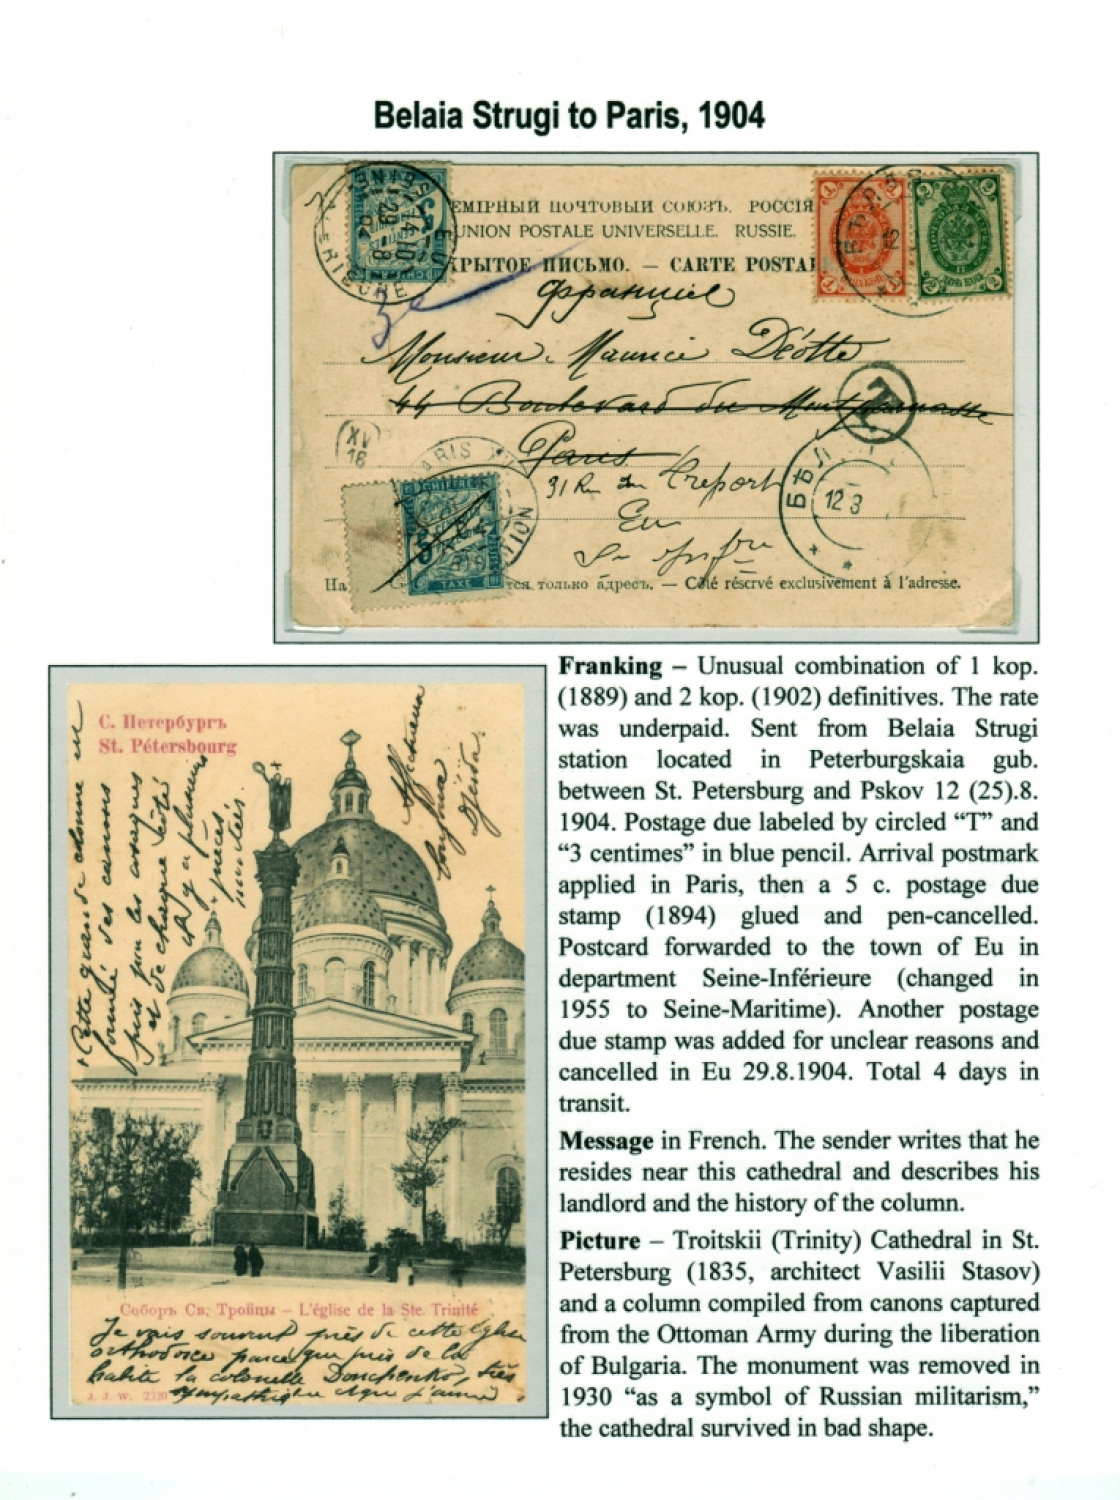 Belaia Strugi to Paris, 1904
ЕМІРНЫЙ ПОЧТОВЫЙ СОЮЗЪ. РОССІЯ
UNION POSTALE UNIVERSELLE. RUSSIE.
КРЫТОЕ ПИСЬМО. — CARTE POSTAL
Monsieur Maurice Déotte
44 Boulevard du Montparnasse
Paris
31 Rue du Treport
Eu
XV
16
T
БѢЛ
12 8
CHIFFRE
5
TAXE
На
тся только адресъ. — Côté réservé exclusivement à l'adresse.
С. Петербургъ
St. Pétersbourg
Cette grande colonne
formée des canons
pris par les
et de chaque côté
il y a plusieurs
Соборъ Св. Тройцы – L'église de la Ste. Trinité
Je vais souvent près de cette église
orthodoxe parce que près de là
habite la colonelle Donchenko, très
J. J. W. 2320
Franking – Unusual combination of 1 kop.
(1889) and 2 kop. (1902) definitives. The rate
was underpaid. Sent from Belaia Strugi
station located in Peterburgskaia gub.
between St. Petersburg and Pskov 12 (25).8.
1904. Postage due labeled by circled “T” and
“3 centimes” in blue pencil. Arrival postmark
applied in Paris, then a 5 c. postage due
stamp (1894) glued and pen-cancelled.
Postcard forwarded to the town of Eu in
department Seine-Inférieure (changed in
1955 to Seine-Maritime). Another postage
due stamp was added for unclear reasons and
cancelled in Eu 29.8.1904. Total 4 days in
transit.
Message in French. The sender writes that he
resides near this cathedral and describes his
landlord and the history of the column.
Picture – Troitskii (Trinity) Cathedral in St.
Petersburg (1835, architect Vasilii Stasov)
and a column compiled from canons captured
from the Ottoman Army during the liberation
of Bulgaria. The monument was removed in
1930 “as a symbol of Russian militarism,”
the cathedral survived in bad shape.